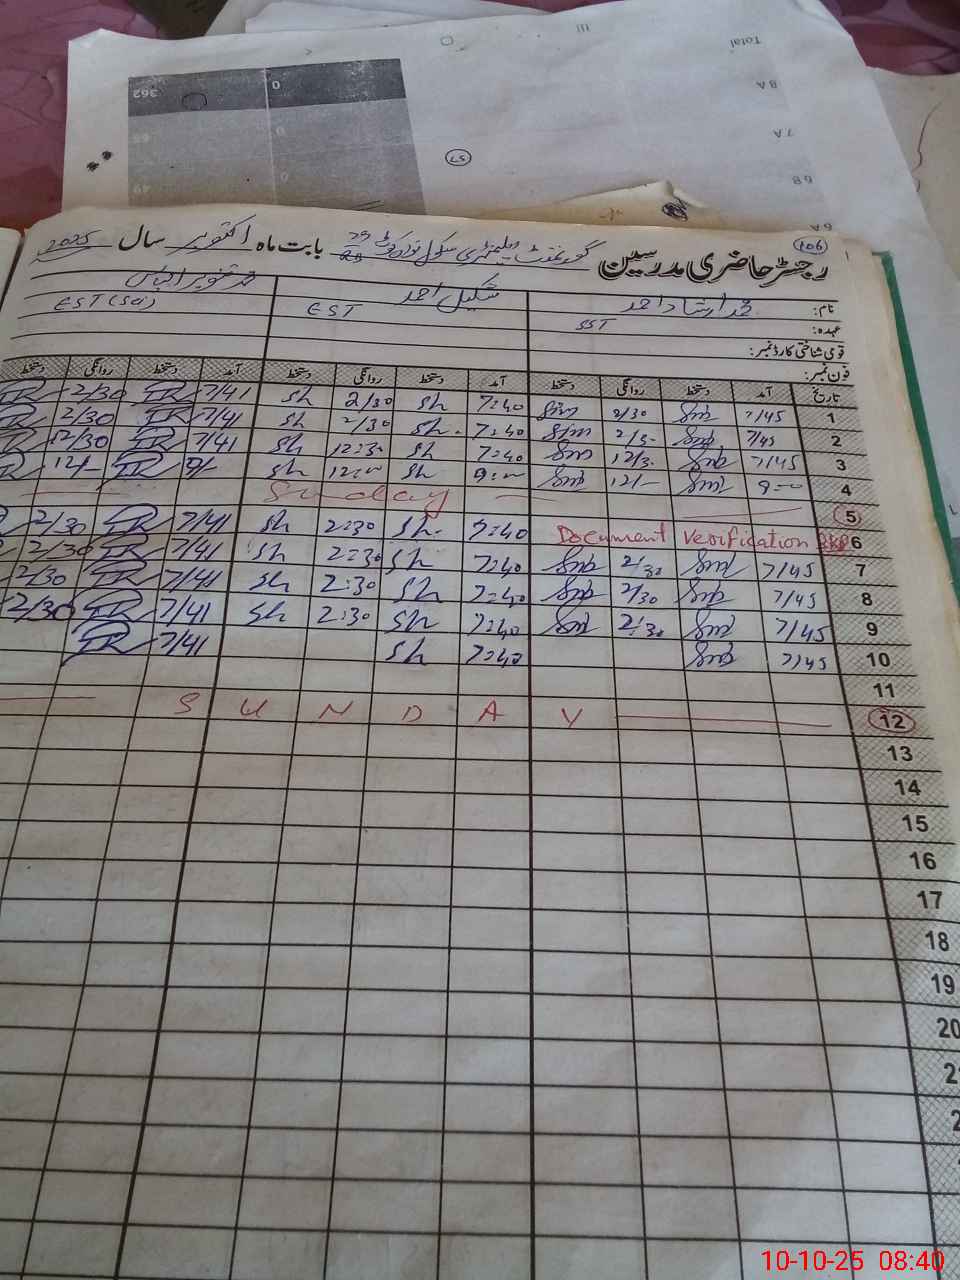 362
0
Total
8A
7A
6B
6A
57
106
رجسٹر حاضری مدرسین گورنمنٹ ایلیمنٹری سکول بابت ماہ اکتوبر سال 2025
نام: محمد ارشاد احمد شکیل احمد محمد تنویر الیاس
عہدہ: SST EST EST (Sci)
قومی شناختی کارڈ نمبر:
فون نمبر:
تاریخ آمد دستخط روانگی دستخط آمد دستخط روانگی دستخط آمد دستخط روانگی دستخط
1 7/45 2/30 7:40 sh 2/30 sh 7/41 2/30
2 7/45 7:40 sh 2/30 sh 7/41 2/30
3 7/45 12/3. 7:40 sh 12:30 sh 7/41 12/30
4 9:00 12/- 9:00 sh 12:00 sh 9/- 12/-
5 Sunday
6 Document verification 7:40 sh 2:30 sh 7/41 2/30
7 7/45 2/30 7:40 sh 2:30 sh 7/41 2/30
8 7/45 2/30 7:40 sh 2:30 sh 7/41 2/30
9 7/45 2:30 7:40 sh 2:30 sh 7/41 2/30
10 7/45 7:40 sh 7/41
11
12 SUNDAY
13
14
15
16
17
18
19
20
10-10-25 08:40